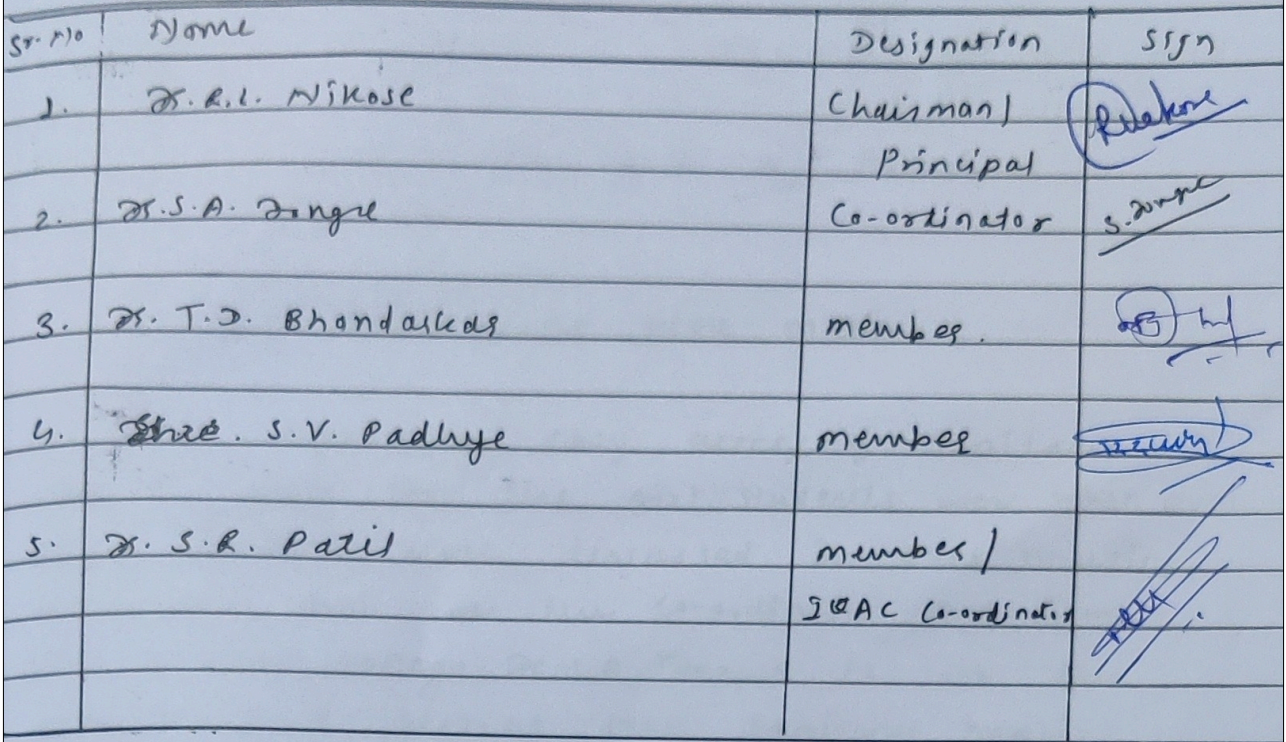 Sr. No Name Designation Sign
1. Dr. R.L. Nikose Chairman/
Principal
2. Dr. S.A. Dongre Co-ordinator S. Dongre
3. Dr. T.D. Bhandarkar member.
4. Shre. S.V. Padhye member
5. Dr. S.R. Patil member/
IQAC Co-ordinator